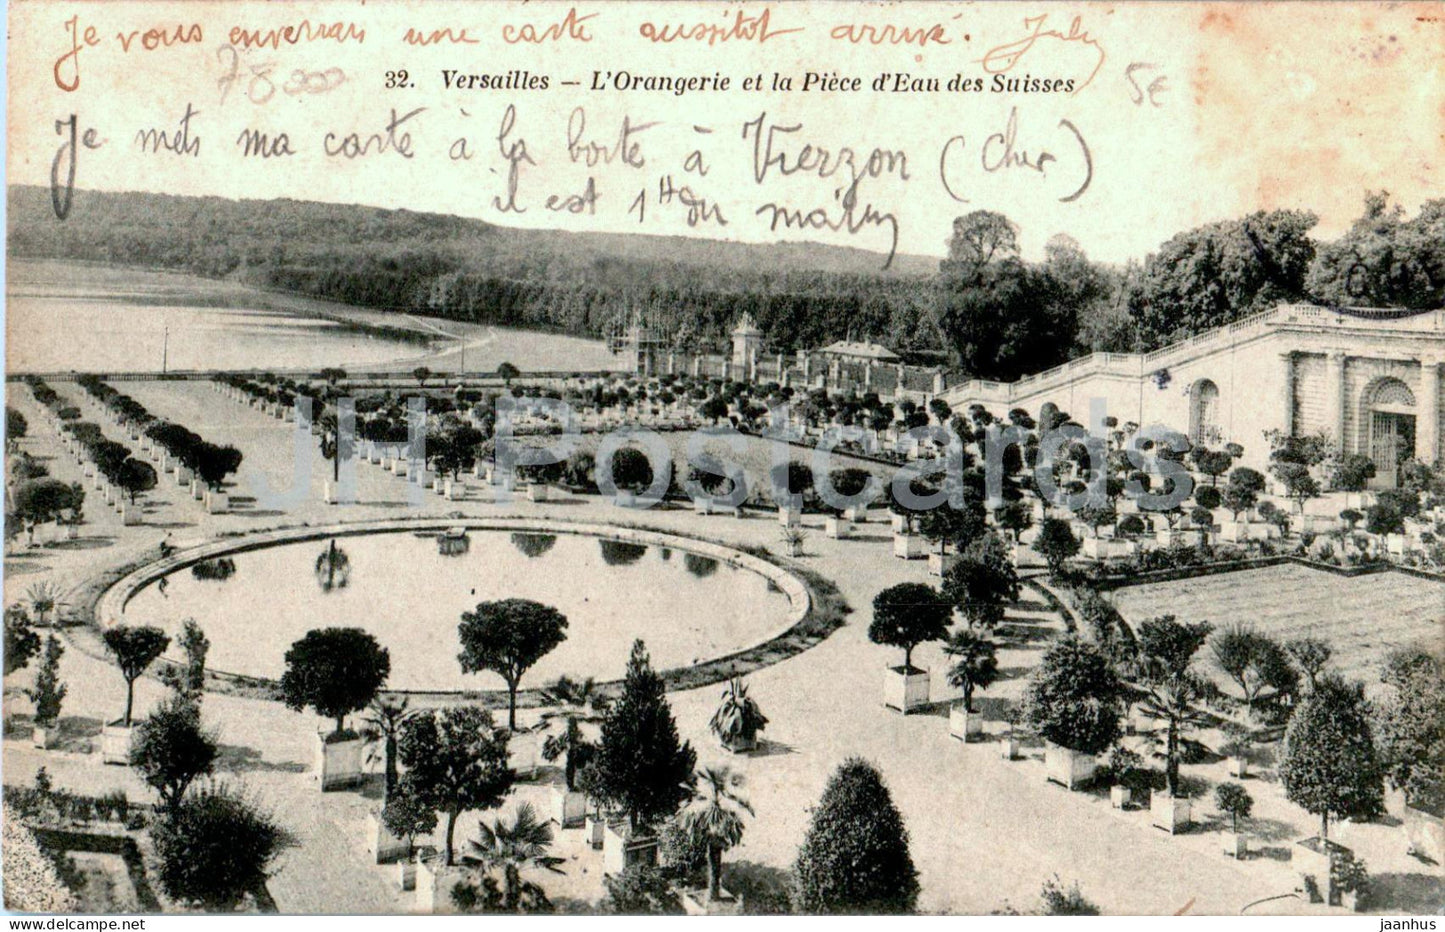 Je vous enverrais une carte aussitot arrivé. July
78000
32. Versailles — L'Orangerie et la Pièce d'Eau des Suisses
5€
Je mets ma carte à la boite à Vierzon (Cher)
il est 1H du matin
JH Postcards
hippostcard.com
jaanhus